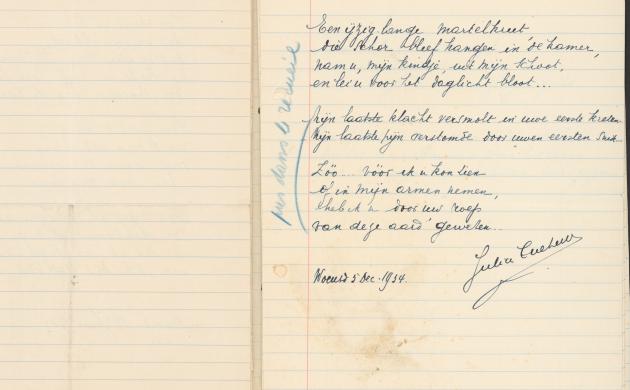 Een ijzig lange martelkreet
die schor bleef hangen in de kamer,
nam u, mijn kindje, uit mijn schoot,
en lei u voor het daglicht bloot...
Mijn laatste klacht versmolt in uwe eerste kreten
Mijn laatste pijn verstomde door uwen eersten snik
Zóó... vóór ik u kon zien
of in mijn armen nemen,
heb ik u door uw roep
van deze aard' geweten...
Julia
5 Dec. 1934.
pas dans le recueil